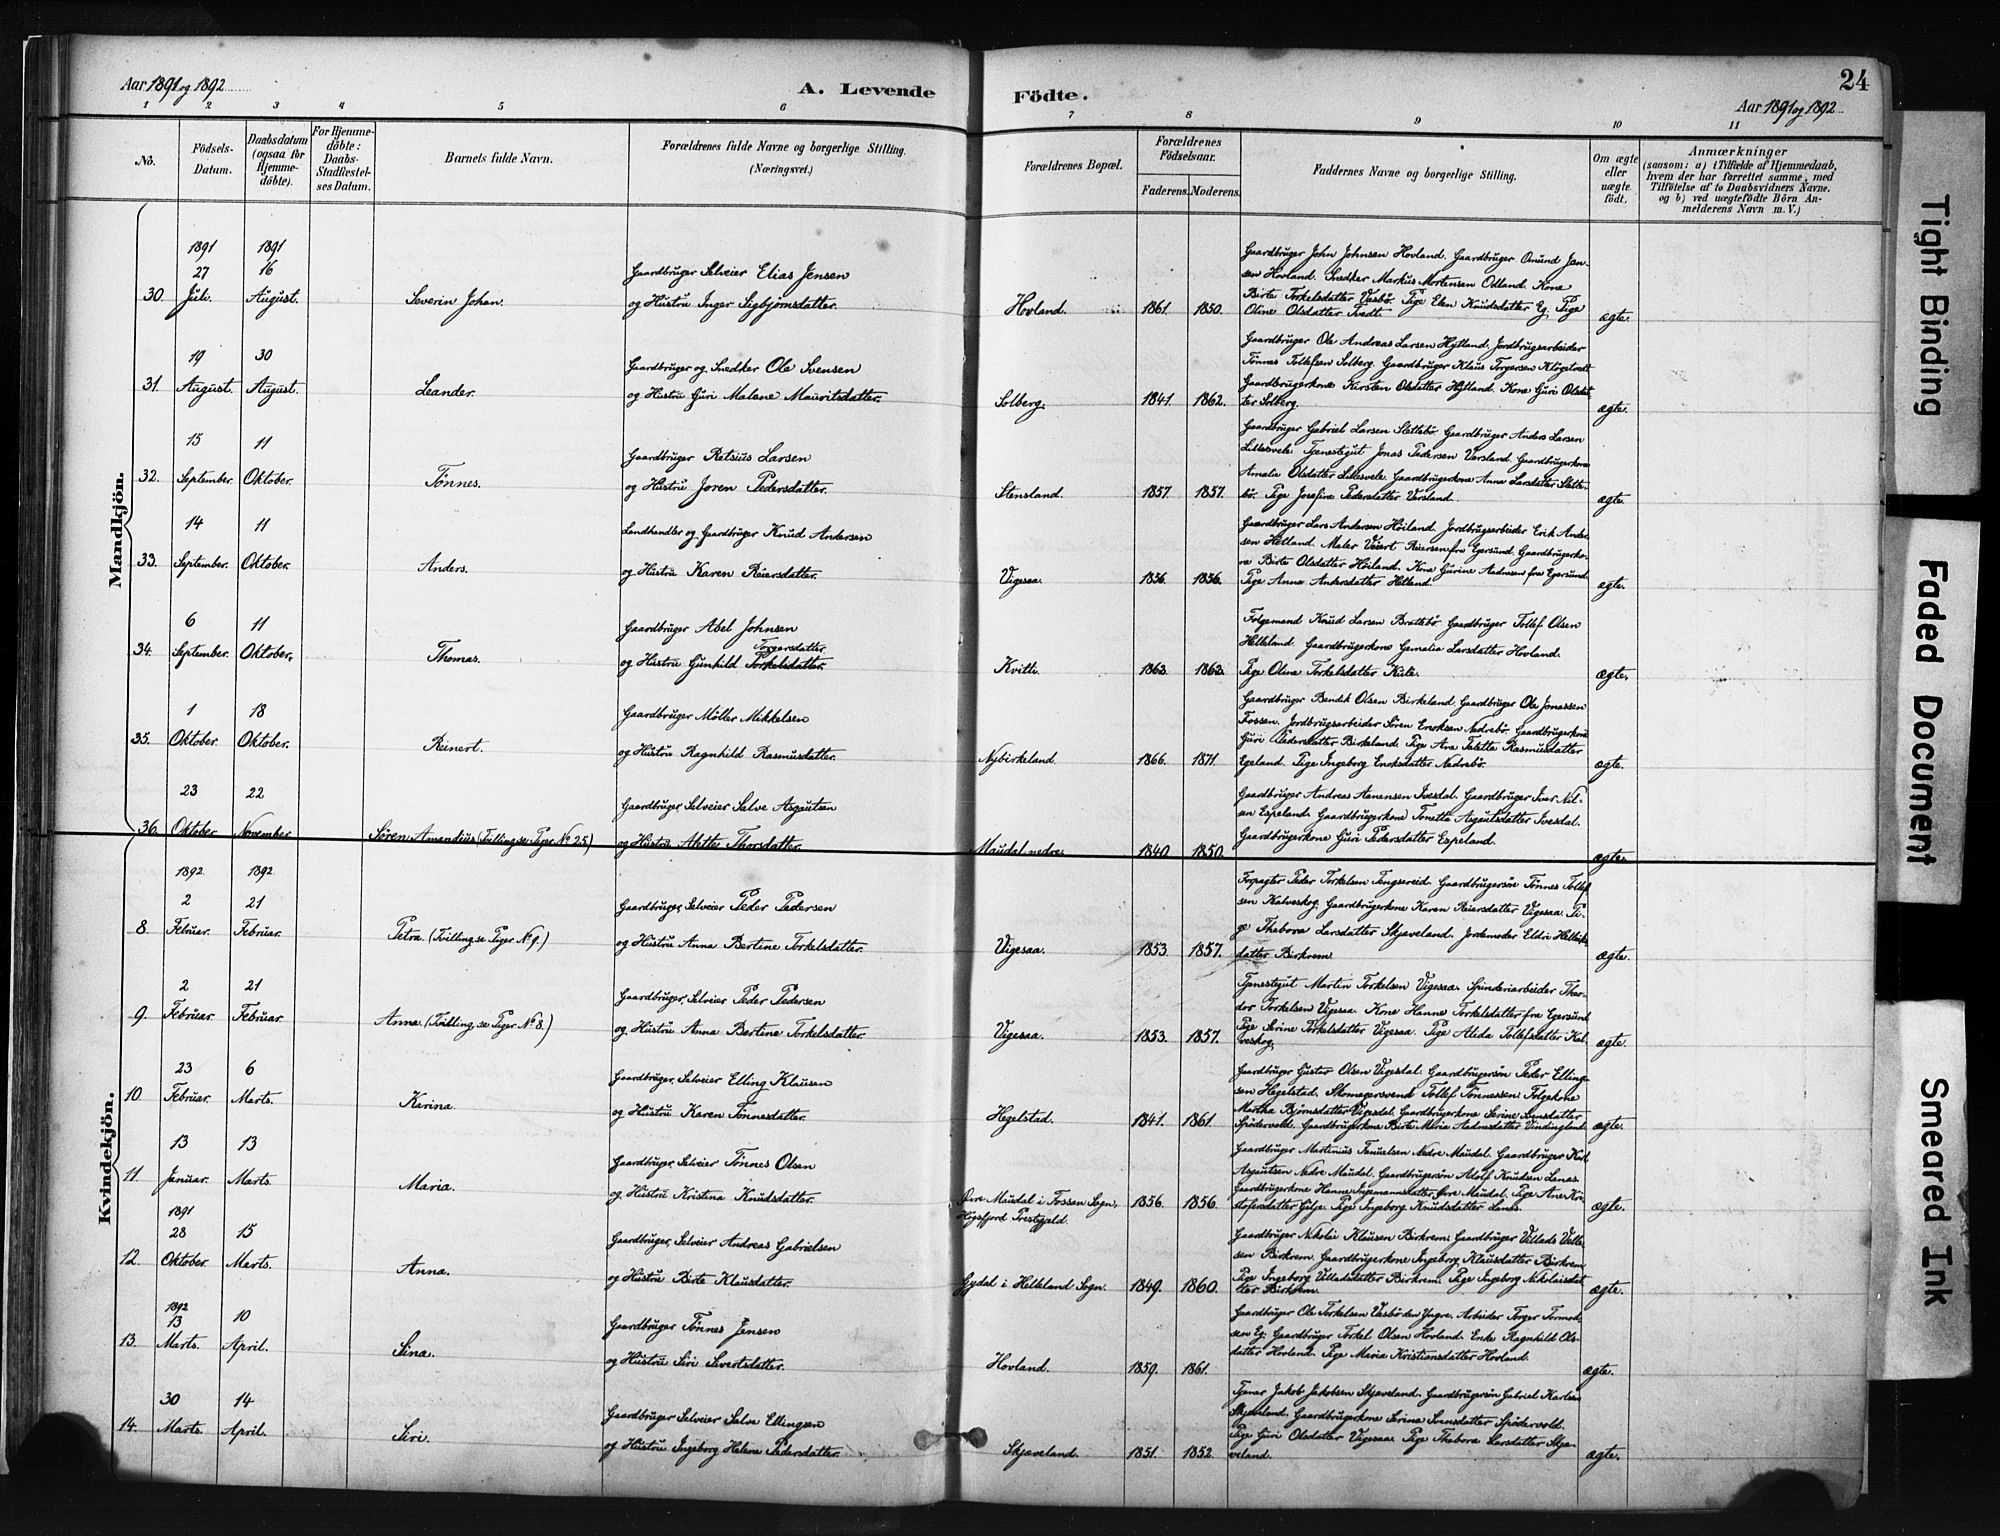 Aar 1891 og 1892
A. Levende
Födte.
24
Aar 1891 og 1892
1 2 3 4 5 6 7 8 9 10 11
No.
Födsels-
Datum.
Daabsdatum
(ogsaa for
Hjemme-
döbte).
For Hjemme-
döbte:
Daabs-
Stadfæstel-
ses Datum.
Barnets fulde Navn.
Forældrenes fulde Navne og borgerlige Stilling.
(Næringsvei.)
Forældrenes Bopæl.
Forældrenes
Födselsaar.
Faderens. Moderens.
Faddernes Navne og borgerlige Stilling.
Om ægte
eller
uægte
födt.
Anmærkninger
(saasom: a) i Tilfælde af Hjemmedaab,
hvem der har forrettet samme, med
Tilföielse af to Daabsvidners Navne.
og b) ved uægtefödte Börn An-
melderens Navn m. V.)
Mandkjön.
1891 1891
27 16
30. Juli. August.
Severin Johan.
Gaardbruger Selveier Elias Jensen
og Hustru Inger Sigbjørnsdatter.
Hovland. 1861. 1850.
Gaardbruger John Johnsen Hovland. Gaardbruger Omund Jen-
sen Hovland. Snedker Markus Mortensen Odland. Kone
Birte Torkelsdatter Vasbø. Pige Elen Knudsdatter Eg. Pige
Oline Olsdatter Tvedt.
ægte.
19 30
31. August. August.
Leander.
Gaardbruger og Snedker Ole Svensen
og Hustru Guri Malene Mauritsdatter.
Solberg. 1841. 1862.
Gaardbruger Ole Andreas Larsen Hytland. Jordbrugsarbeider
Tønnes Tollefsen Solberg. Gaardbruger Klaus Torgersen Kløgetvedt
Gaardbrugerkone Kirsten Olsdatter Hytland. Kone Guri Olsdat
ter Solberg.
ægte.
15 11
32. September. Oktober.
Tønnes.
Gaardbruger Retsius Larsen
og Hustru Joren Pedersdatter.
Stensland. 1857. 1857.
Gaardbruger Gabriel Larsen Slettebø. Gaardbruger Anders Larsen
Lillesvele. Tjenestegut Jonas Pedersen Versland. Gaardbrugerkone
Amalie Olsdatter Lillesvele. Gaardbrugerkone Anne Larsdatter Slette-
bø. Pige Josefine Pedersdatter Versland.
ægte.
14 11
33. September. Oktober.
Anders.
Landhandler og Gaardbruger Knud Andersen
og Hustru Karen Reiersdatter.
Vigesaa. 1856. 1856.
Gaardbruger Lars Andersen Høiland. Jordbrugsarbeider Erik Ander
sen Hetland. Maler Veiert Reiersen fra Egersund. Gaardbrugerko-
ne Birte Olsdatter Høiland. Kone Gurine Aadnesen fra Egersund.
Pige Anna Andersdatter Hetland.
ægte.
6 11
34. September. Oktober.
Thomas.
Gaardbruger Abel Johnsen
Torgersdatter
og Hustru Gunhild Torkelsdatter.
Kvitli. 1863. 1862.
Folgemand Knud Larsen Brattebø. Gaardbruger Tollef Olsen
Helleland. Gaardbrugerkone Gemalie Larsdatter Hovland.
Pige Oline Torkelsdatter Kile.
ægte.
1 18
35. Oktober. Oktober.
Reinert.
Gaardbruger Møller Mikkelsen
og Hustru Ragnhild Rasmusdatter.
Nybirkeland. 1866. 1871.
Gaardbruger Bendik Olsen Birkeland. Gaardbruger Ole Jonassen
Fossen. Jordbrugsarbeider Søren Enoksen Nedrebø. Gaardbrugerkone
Guri Pedersdatter Birkeland. Pige Ane Taletta Rasmusdatter
Egeland. Pige Ingeborg Enoksdatter Nedrebø.
ægte.
23 22
36. Oktober November
Søren Amandius (Tvilling, se Piger No 25.)
Gaardbruger, Selveier Salve Asgautsen
og Hustru Alette Thorsdatter.
Maudal, nedre. 1840 1850.
Gaardbruger Andreas Aanensen Ivesdal. Gaardbruger Iver Nil-
sen Espeland. Gaardbrugerkone Tonetta Asgautsdatter Ivesdal.
Gaardbrugerkone Guri Pedersdatter Espeland.
ægte.
Kvindekjön.
1892 1892
2 21
8. Februar. Februar.
Petra. (Tvilling, se Piger No 9.)
Gaardbruger, Selveier Peder Pedersen
og Hustru Anna Bertine Torkelsdatter.
Vigesaa. 1853. 1857.
Forpagter Peder Torkelsen Tengsareid. Gaardbrugersøn Tønnes Tollef
sen Kalveskog. Gaardbrugerkone Karen Reiersdatter Vigesaa. Pi-
ge Thabora Larsdatter Skjæveland. Jordemoder Eldri Helliks
datter Birkrem.
ægte.
2 21
9. Februar Februar.
Anna. (Tvilling, se Piger No 8.)
Gaardbruger, Selveier Peder Pedersen
og Hustru Anna Bertine Torkelsdatter.
Vigesaa. 1853. 1857.
Tjenestegut Martin Torkelsen Vigesaa. Spinderiarbeider Theo-
dor Torkelsen Vigesaa. Kone Hanne Torkelsdatter fra Egersund
Pige Serine Torkelsdatter Vigesaa. Pige Alida Tollefsdatter Kal-
veskog.
ægte.
23 6
10. Februar. Marts.
Karina.
Gaardbruger, Selveier Elling Klausen
og Hustru Karen Tønnesdatter.
Hegelstad. 1841. 1861.
Gaardbruger Gustav Olsen Vigesdal. Gaardbrugersøn Peder Elling-
sen Hegelstad. Skomagersvend Tollef Tønnessen. Folgekone
Martha Bjørnsdatter Vigesdal. Gaardbrugerkone Serine Svensdatter
Spødervold. Gaardbrugerkone Birte Maria Aadnesdatter Vindingland.
ægte.
13 13
11. Januar. Marts.
Maria.
Gaardbruger, Selveier Tønnes Olsen
og Hustru Kristina Knudsdatter.
Øvre Maudal i Fossen Sogn,
Høgsfjord Prestegjeld. 1856. 1856.
Gaardbruger Martinius Tanuelsen Nedre Maudal. Gaardbruger Karl
Asgautsen Nedre Maudal. Gaardbrugersøn Adolf Knudsen Lenes.
Gaardbrugerkone Hanne Ingemannsdatter Øvre Maudal. Pige Ane Kri-
stofersdatter Gilje. Pige Ingeborg Knudsdatter Lenes.
ægte.
1891
28 15
12. Oktober. Marts.
Anna.
Gaardbruger, Selveier Andreas Gabrielsen
og Hustru Birte Klausdatter.
Gydal i Helleland Sogn. 1849. 1860.
Gaardbruger Nikolai Klausen Birkrem. Gaardbruger Villads Ville-
sen Birkrem. Gaardbrugerkone Ingeborg Klausdatter Birkrem
Pige Ingeborg Villadsdatter Birkrem. Pige Ingeborg Nikolaisdat
ter Birkrem.
ægte.
1892
13 10
13. Marts. April.
Sina.
Gaardbruger Tønnes Jensen
og Hustru Siri Sivertsdatter.
Hovland. 1859. 1861.
Gaardbruger Ole Torkelsen Vasbø den Yngre. Arbeider Torger Tormod-
sen Eg. Gaardbruger Torkel Olsen Hovland. Enke Ragnhild Ols-
datter Hovland. Pige Maria Kristiansdatter Hovland.
ægte.
30 14
14. Marts. April.
Siri.
Gaardbruger Selveier Salve Ellingsen
og Hustru Ingeborg Helene Pedersdatter.
Skjæveland. 1851. 1852.
Tjener Jakob Jakobsen Skjæveland. Gaardbrugersøn Gabriel Karlsen
Skjæveland. Gaardbrugerkone Serina Svensdatter Spødervold.
Pige Guri Olsdatter Vigesaa. Pige Thabora Larsdatter Skjæ-
veland.
ægte.
Tight Binding
Faded Document
Smeared Ink